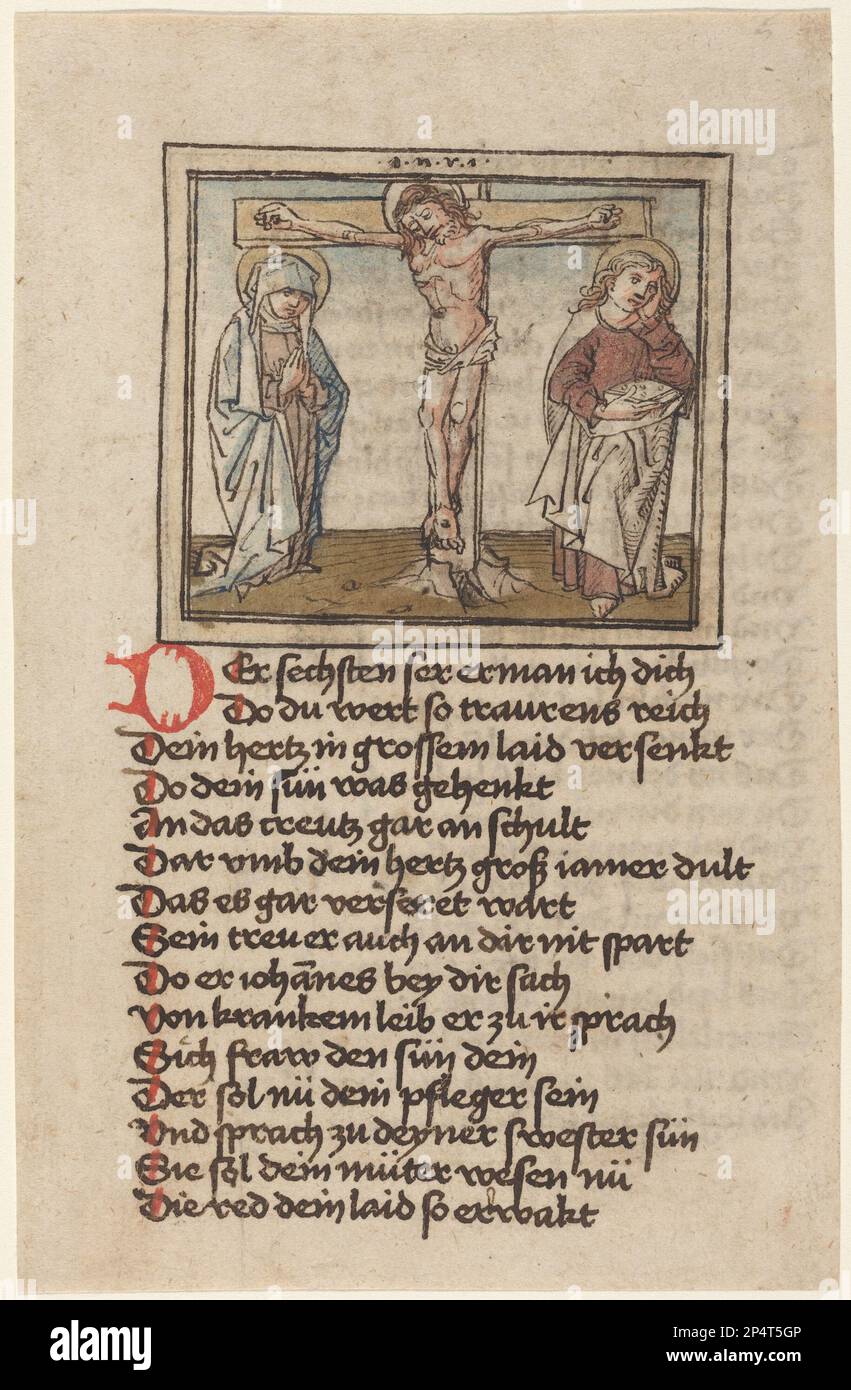 ·I·n·r·i·
Der sechsten ser erman ich dich
Do du wert so traurens reich
Dein hertz in grossem laid versenkt
Do dein sün was gehenkt
An das creutz gar an schult
Dar vmb dein hertz groß iamer dult
Das es gar verseret wart
Sein treu er auch an dir nit spart
Do er iohānes bey dir sach
Von krankem leib er zu ir sprach
Sich fraw den sün dein
Der sol nū dein pfleger sein
Vnd sprach zu deyner swester sün
Sie sol dein müter wesen nū
Die red dein laid so erwakt
a
alamy
Image ID: 2P4T5GP
www.alamy.com